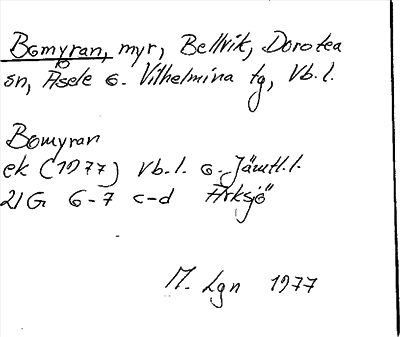 Bomyran, myr, Bellvik, Dorotea
sn, Åsele o. Vilhelmina tg, Vb.l.
Bomyran
ek (1977) Vb.l. o. Jämtl.l.
21G 6-7 c-d Arksjö
M. Lgn 1977